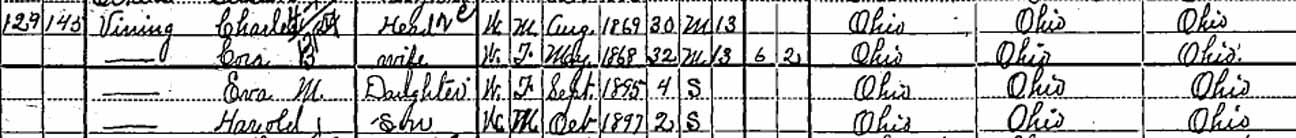 129 145 Vining Charles Head W. M. Aug. 1869 30 M 13 Ohio Ohio Ohio
— B wife W. F. May 1868 32 M 13 6 2 Ohio Ohio Ohio
— Eva M. Daughter W. F. Sept. 1895 4 S Ohio Ohio Ohio
— Harold Son W. M. Oct 1897 2 S Ohio Ohio Ohio